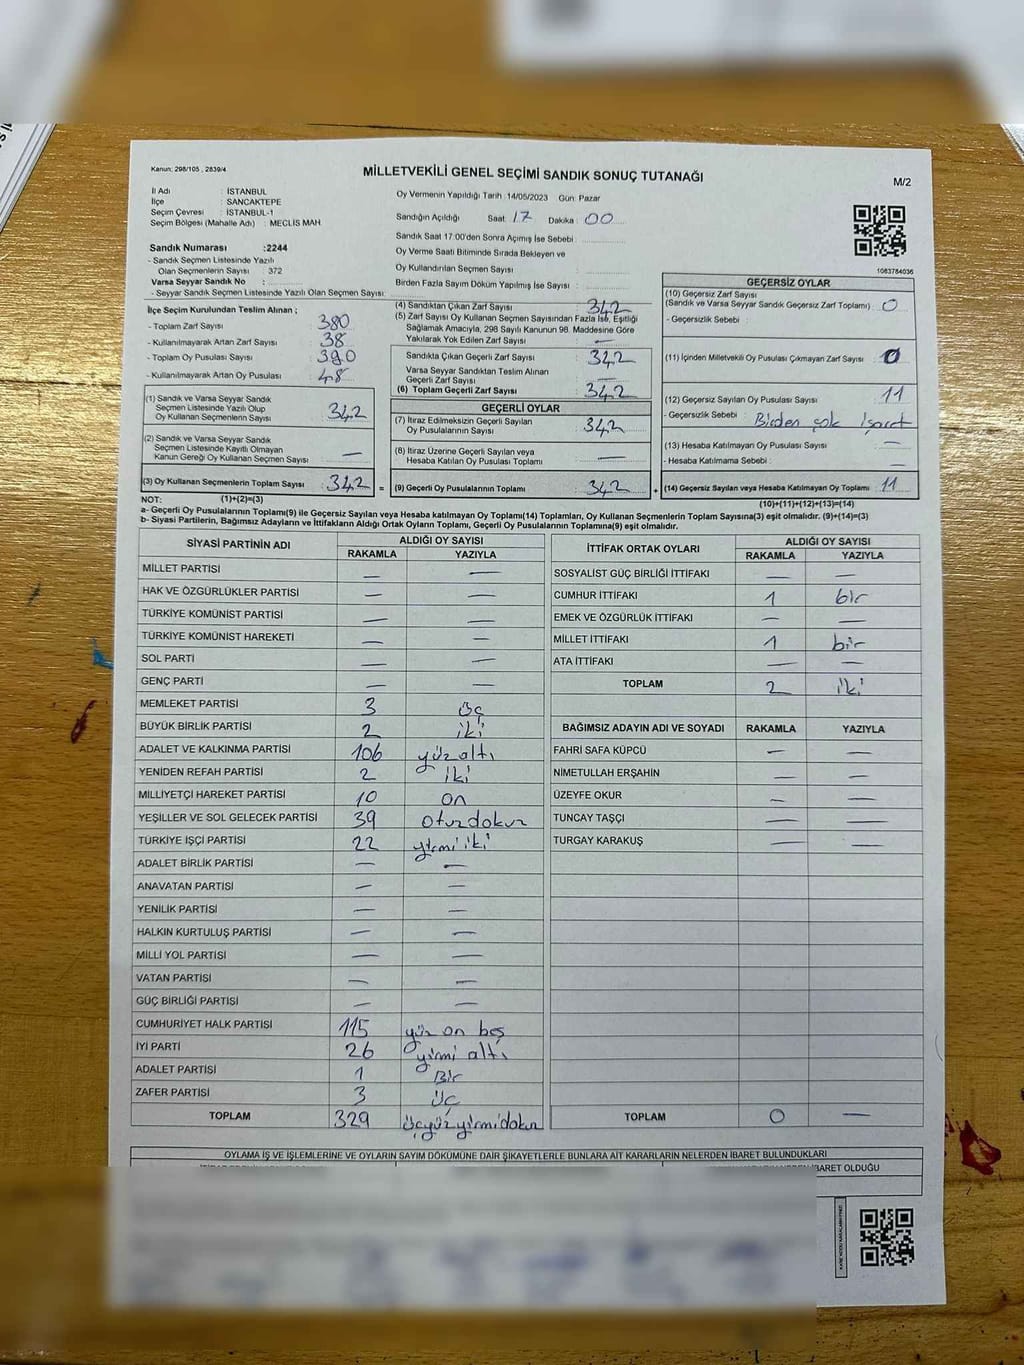 Kanun: 298/105 , 2839/4
MİLLETVEKİLİ GENEL SEÇİMİ SANDIK SONUÇ TUTANAĞI
M/2
İl Adı : İSTANBUL
İlçe : SANCAKTEPE
Seçim Çevresi : İSTANBUL-1
Seçim Bölgesi (Mahalle Adı) : MECLİS MAH
Sandık Numarası :2244
- Sandık Seçmen Listesinde Yazılı
Olan Seçmenlerin Sayısı : 372
Varsa Seyyar Sandık No :
- Seyyar Sandık Seçmen Listesinde Yazılı Olan Seçmen Sayısı:
Oy Vermenin Yapıldığı Tarih : 14/05/2023 Gün: Pazar
Sandığın Açıldığı Saat 17 Dakika : 00
Sandık Saat 17:00'den Sonra Açılmış İse Sebebi :
Oy Verme Saati Bitiminde Sırada Bekleyen ve
Oy Kullandırılan Seçmen Sayısı :
Birden Fazla Sayım Döküm Yapılmış İse Sayısı :
1083784036
İlçe Seçim Kurulundan Teslim Alınan ;
- Toplam Zarf Sayısı : 380
- Kullanılmayarak Artan Zarf Sayısı : 38
- Toplam Oy Pusulası Sayısı : 390
- Kullanılmayarak Artan Oy Pusulası : 48
(1) Sandık ve Varsa Seyyar Sandık
Seçmen Listesinde Yazılı Olup
Oy Kullanan Seçmenlerin Sayısı : 342
(2) Sandık ve Varsa Seyyar Sandık
Seçmen Listesinde Kayıtlı Olmayan
Kanun Gereği Oy Kullanan Seçmen Sayısı : —
(3) Oy Kullanan Seçmenlerin Toplam Sayısı : 342 =
(4) Sandıktan Çıkan Zarf Sayısı : 342
(5) Zarf Sayısı Oy Kullanan Seçmen Sayısından Fazla İse, Eşitliği
Sağlamak Amacıyla, 298 Sayılı Kanunun 98. Maddesine Göre
Yakılarak Yok Edilen Zarf Sayısı : —
Sandıkta Çıkan Geçerli Zarf Sayısı : 342
Varsa Seyyar Sandıktan Teslim Alınan
Geçerli Zarf Sayısı : —
(6) Toplam Geçerli Zarf Sayısı : 342
GEÇERLİ OYLAR
(7) İtiraz Edilmeksizin Geçerli Sayılan
Oy Pusulalarının Sayısı : 342
(8) İtiraz Üzerine Geçerli Sayılan veya
Hesaba Katılan Oy Pusulası Toplamı : —
(9) Geçerli Oy Pusulalarının Toplamı : 342 +
GEÇERSİZ OYLAR
(10) Geçersiz Zarf Sayısı
(Sandık ve Varsa Seyyar Sandık Geçersiz Zarf Toplamı) : 0
- Geçersizlik Sebebi :
(11) İçinden Milletvekili Oy Pusulası Çıkmayan Zarf Sayısı : 0
(12) Geçersiz Sayılan Oy Pusulası Sayısı : 11
- Geçersizlik Sebebi : Birden çok işaret
(13) Hesaba Katılmayan Oy Pusulası Sayısı : —
- Hesaba Katılmama Sebebi : —
(14) Geçersiz Sayılan veya Hesaba Katılmayan Oy Toplamı : 11
NOT: (1)+(2)=(3) (10)+(11)+(12)+(13)=(14)
a- Geçerli Oy Pusulalarının Toplamı(9) ile Geçersiz Sayılan veya Hesaba katılmayan Oy Toplamı(14) Toplamları, Oy Kullanan Seçmenlerin Toplam Sayısına(3) eşit olmalıdır. (9)+(14)=(3)
b- Siyasi Partilerin, Bağımsız Adayların ve İttifakların Aldığı Ortak Oyların Toplamı, Geçerli Oy Pusulalarının Toplamına(9) eşit olmalıdır.
SİYASİ PARTİNİN ADI ALDIĞI OY SAYISI
RAKAMLA YAZIYLA
MİLLET PARTİSİ — —
HAK VE ÖZGÜRLÜKLER PARTİSİ — —
TÜRKİYE KOMÜNİST PARTİSİ — —
TÜRKİYE KOMÜNİST HAREKETİ — —
SOL PARTİ — —
GENÇ PARTİ — —
MEMLEKET PARTİSİ 3 üç
BÜYÜK BİRLİK PARTİSİ 2 iki
ADALET VE KALKINMA PARTİSİ 106 yüzaltı
YENİDEN REFAH PARTİSİ 2 iki
MİLLİYETÇİ HAREKET PARTİSİ 10 on
YEŞİLLER VE SOL GELECEK PARTİSİ 39 otuzdokuz
TÜRKİYE İŞÇİ PARTİSİ 22 yirmi iki
ADALET BİRLİK PARTİSİ — —
ANAVATAN PARTİSİ — —
YENİLİK PARTİSİ — —
HALKIN KURTULUŞ PARTİSİ — —
MİLLİ YOL PARTİSİ — —
VATAN PARTİSİ — —
GÜÇ BİRLİĞİ PARTİSİ — —
CUMHURİYET HALK PARTİSİ 115 yüz on beş
İYİ PARTİ 26 yirmi altı
ADALET PARTİSİ 1 Bir
ZAFER PARTİSİ 3 üç
TOPLAM 329 üçyüzyirmidokuz
İTTİFAK ORTAK OYLARI ALDIĞI OY SAYISI
RAKAMLA YAZIYLA
SOSYALİST GÜÇ BİRLİĞİ İTTİFAKI — —
CUMHUR İTTİFAKI 1 bir
EMEK VE ÖZGÜRLÜK İTTİFAKI — —
MİLLET İTTİFAKI 1 bir
ATA İTTİFAKI — —
TOPLAM 2 iki
BAĞIMSIZ ADAYIN ADI VE SOYADI RAKAMLA YAZIYLA
FAHRİ SAFA KÜPCÜ — —
NİMETULLAH ERŞAHİN — —
ÜZEYFE OKUR — —
TUNCAY TAŞÇI — —
TURGAY KARAKUŞ — —
TOPLAM 0 —
OYLAMA İŞ VE İŞLEMLERİNE VE OYLARIN SAYIM DÖKÜMÜNE DAİR ŞİKAYETLERLE BUNLARA AİT KARARLARIN NELERDEN İBARET BULUNDUKLARI
İBARET OLDUĞU